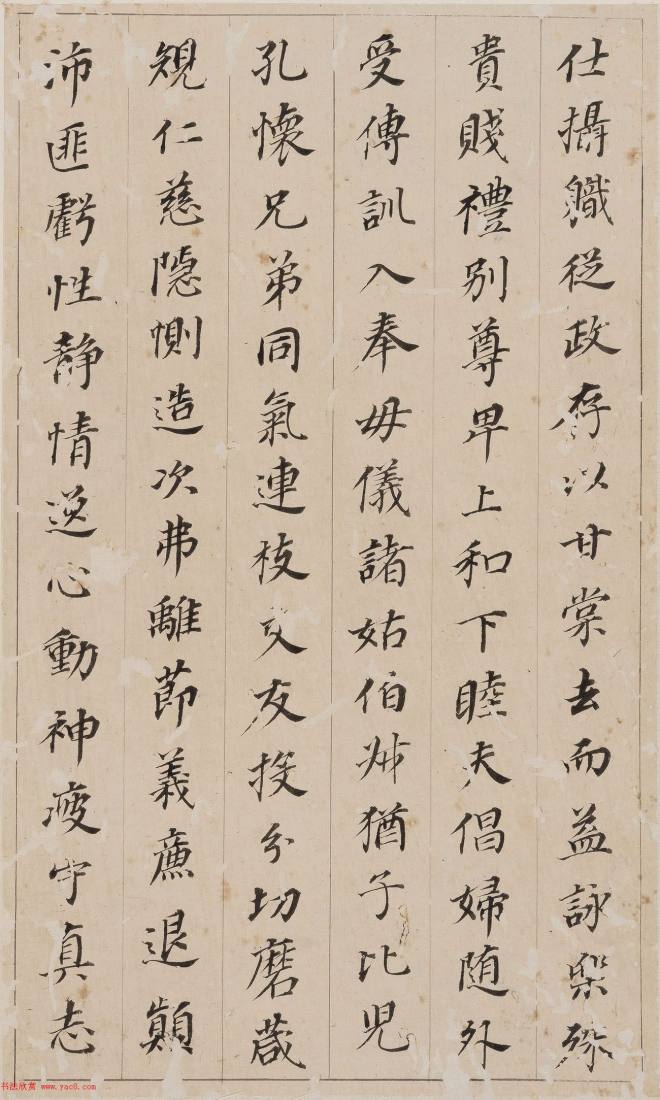 仕攝職從政存以甘棠去而益詠樂殊
貴賤禮別尊卑上和下睦夫倡婦随外
受傅訓入奉母儀諸姑伯叔猶子比兒
孔懷兄弟同氣連枝交友投分切磨箴
規仁慈隠惻造次弗離節義廉退顛
沛匪虧性静情逸心動神疲守真志
书法欣赏 www.yac8.com